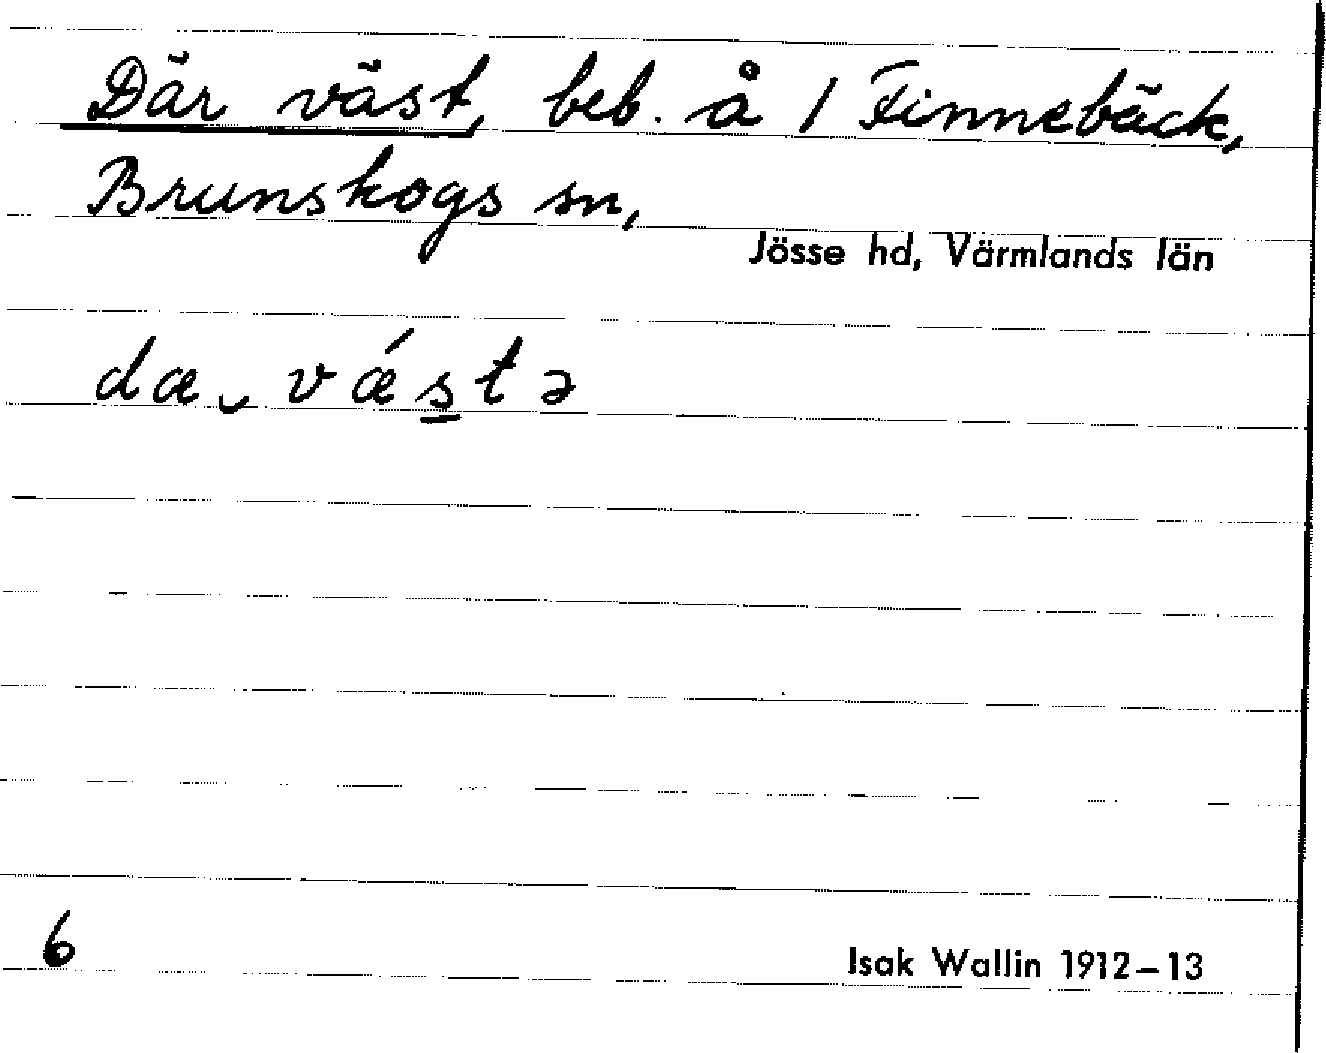 Där väst, beb. å 1 Finnebäck,
Brunskogs sn,
Jösse hd, Värmlands län
dæ‿vǽs̲tə
6
Isak Wallin 1912–13